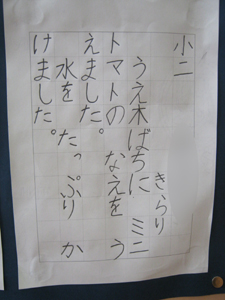 小二
きらり
うえ木ばちに ミニ
トマトの なえを う
えました。
水を たっぷり か
けました。